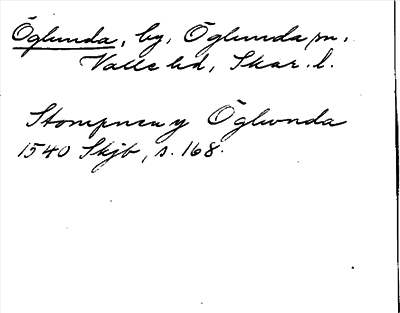 Öglunda, by, Öglunda sn,
Valle hd, Skar. l.
Stompne a y Öglwnda
1540 Skjb, s. 168.